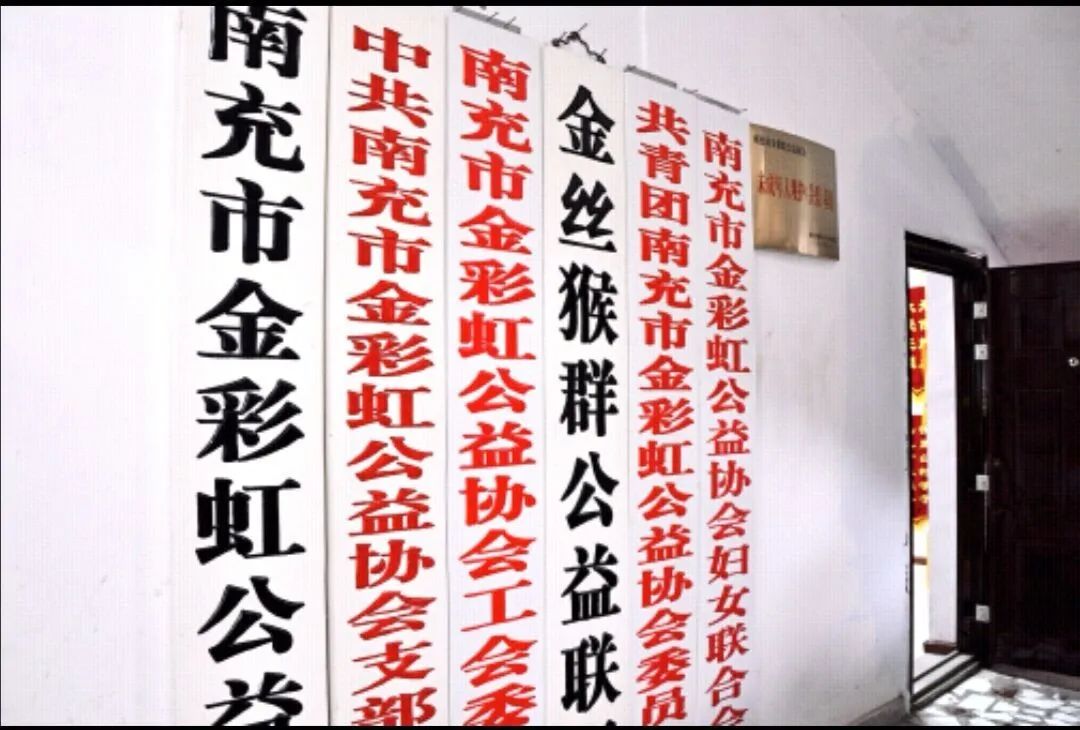 南充市金彩虹公益
中共南充市金彩虹公益协会支部
南充市金彩虹公益协会工会委
金丝猴群公益联
共青团南充市金彩虹公益协会委员
南充市金彩虹公益协会妇女联合会